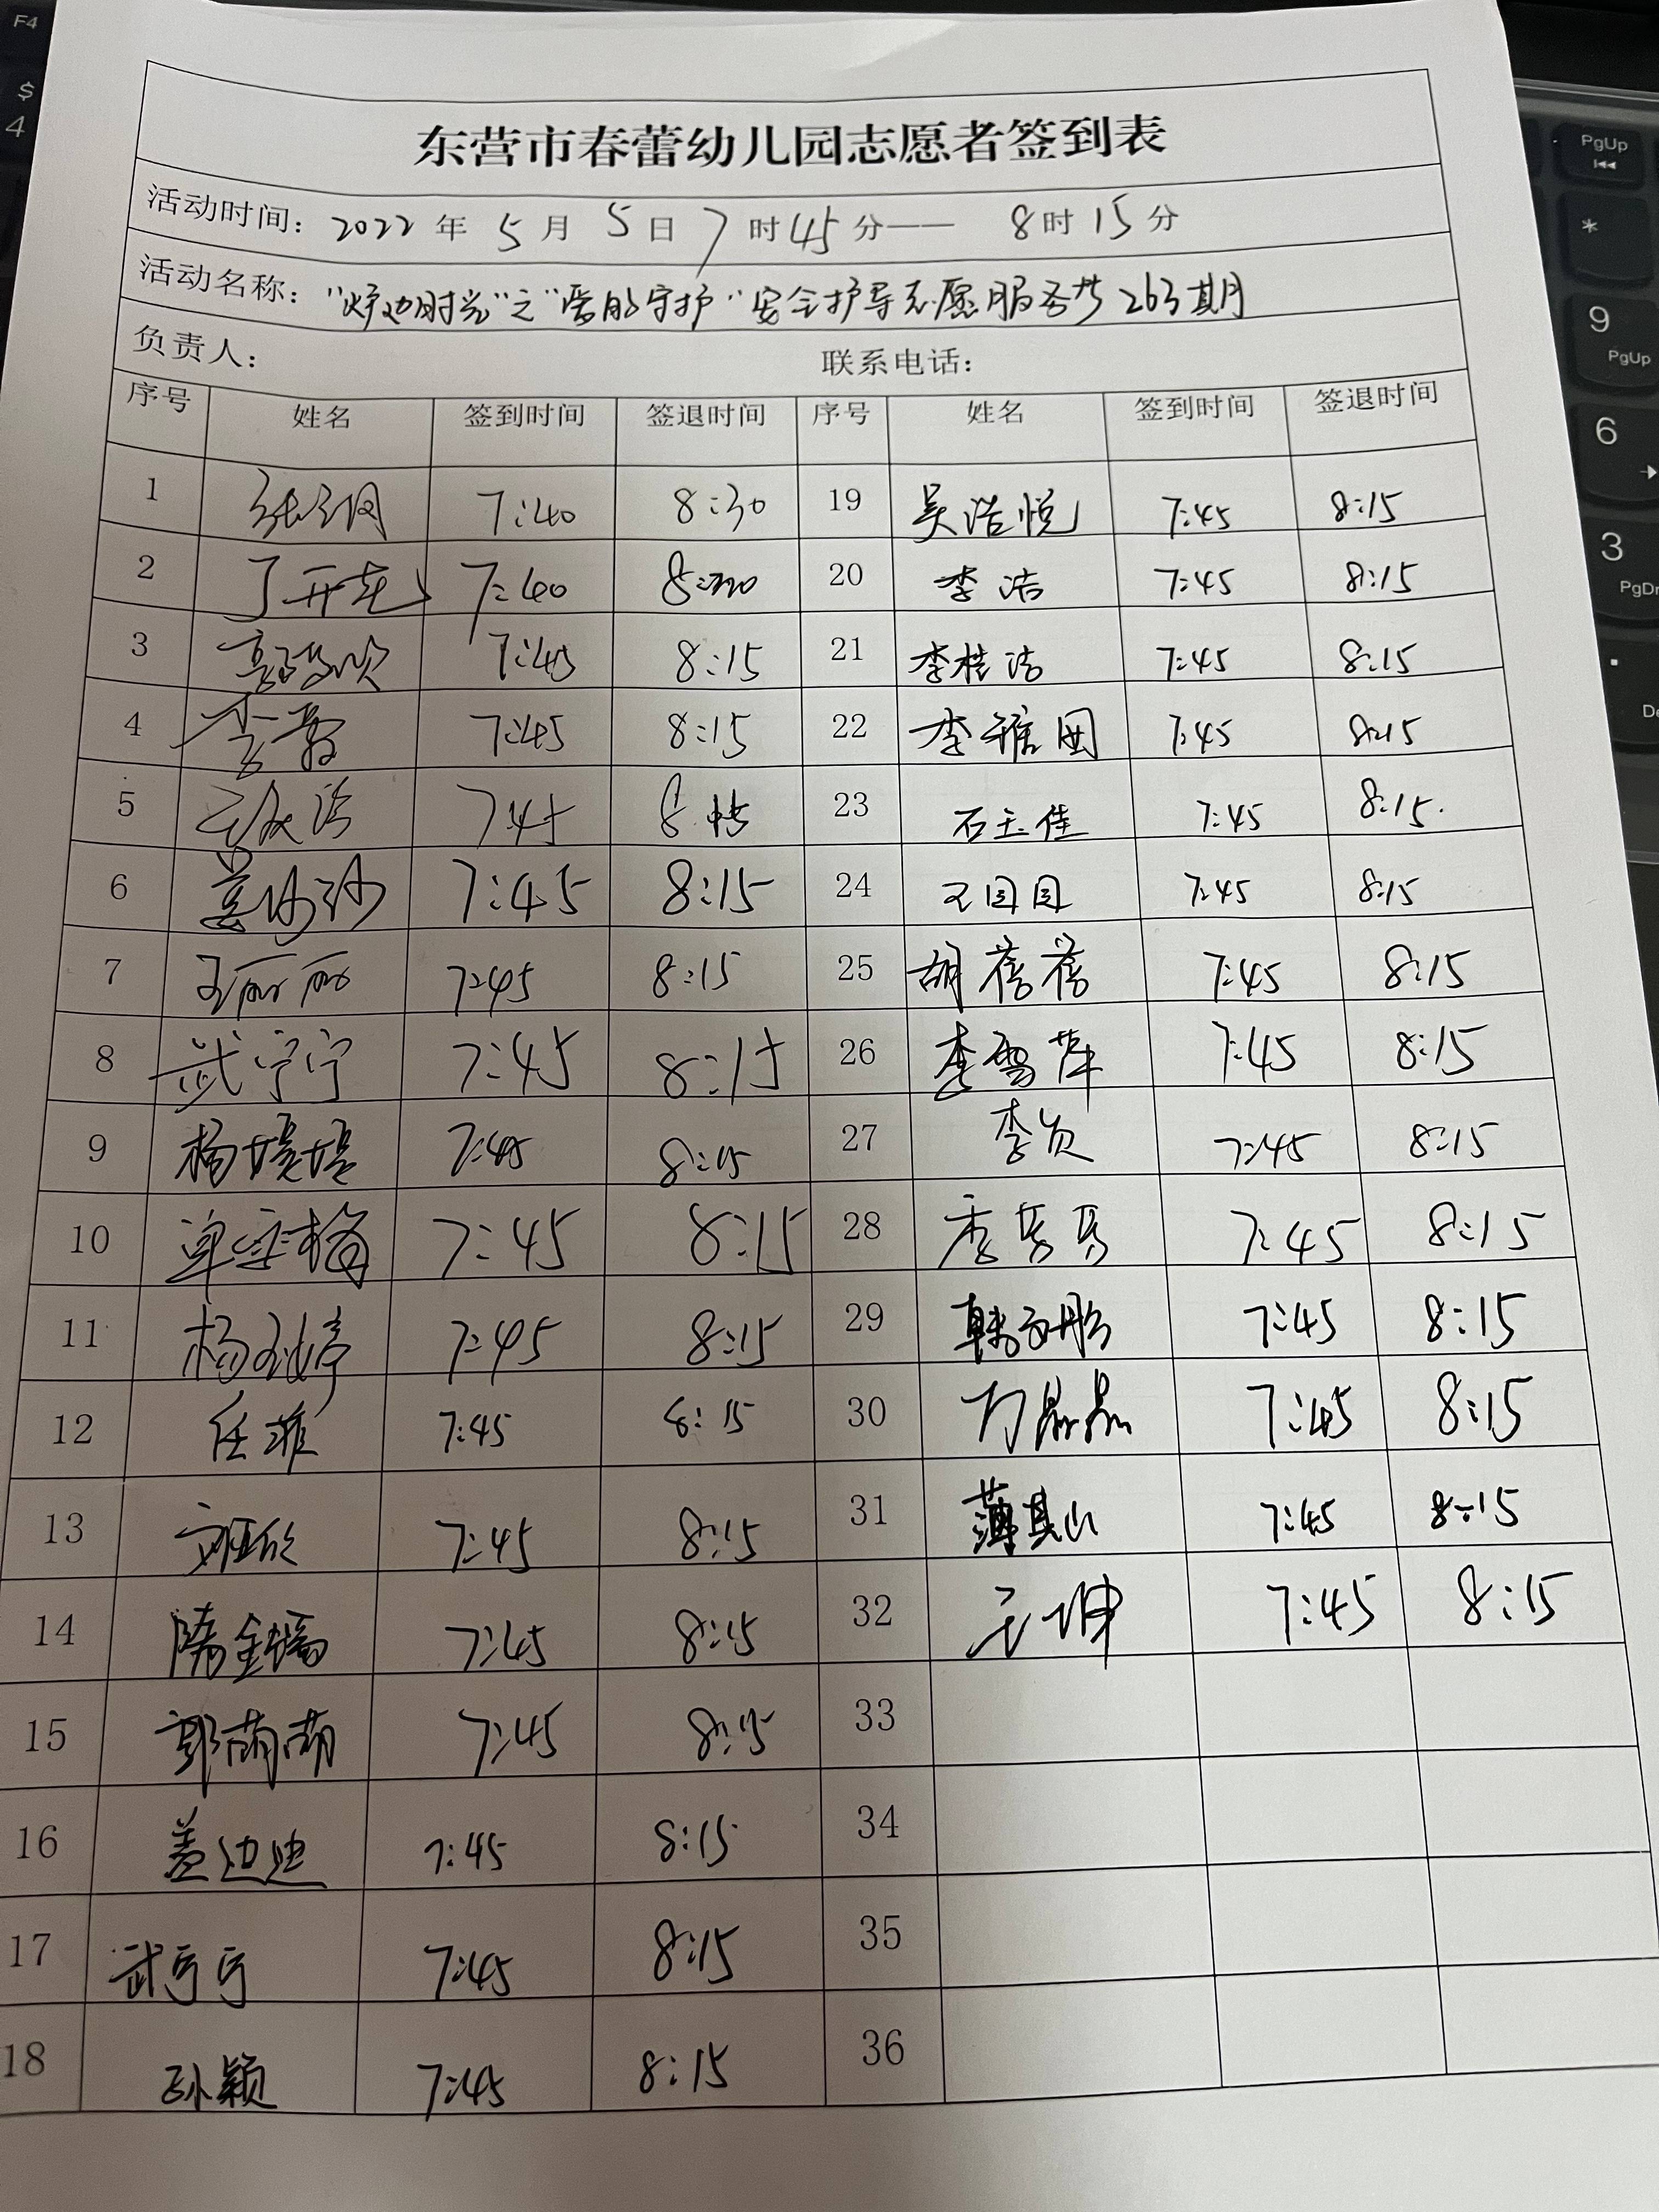 东营市春蕾幼儿园志愿者签到表
活动时间：2022年5月5日7时45分——8时15分
活动名称："炉边时光"之"爱的守护"安全护导志愿服务第263期
负责人： 联系电话：
序号 姓名 签到时间 签退时间 序号 姓名 签到时间 签退时间
1 7:40 8:30 19 吴浩悦 7:45 8:15
2 7:40 20 李洁 7:45 8:15
3 7:45 8:15 21 李桂洁 7:45 8:15
4 7:45 8:15 22 7:45 8:15
5 7:45 8:15 23 石玉佳 7:45 8:15.
6 姜沙沙 7:45 8:15 24 王园园 7:45 8:15
7 王丽丽 7:45 8:15 25 胡蓓蓓 7:45 8:15
8 武宁宁 7:45 8:15 26 李雪萍 7:45 8:15
9 杨媞媞 7:45 8:15 27 7:45 8:15
10 7:45 8:15 28 李芳芳 7:45 8:15
11 7:45 8:15 29 7:45 8:15
12 任雅 7:45 8:15 30 7:45 8:15
13 7:45 8:15 31 薄其山 7:45 8:15
14 7:45 8:15 32 王坤 7:45 8:15
15 郭萌萌 7:45 8:15 33
16 盖迪迪 7:45 8:15 34
17 武宁宁 7:45 8:15 35
18 孙颖 7:45 8:15 36
F4
$
4
PgUp
*
9
PgUp
6
3
PgDn
.